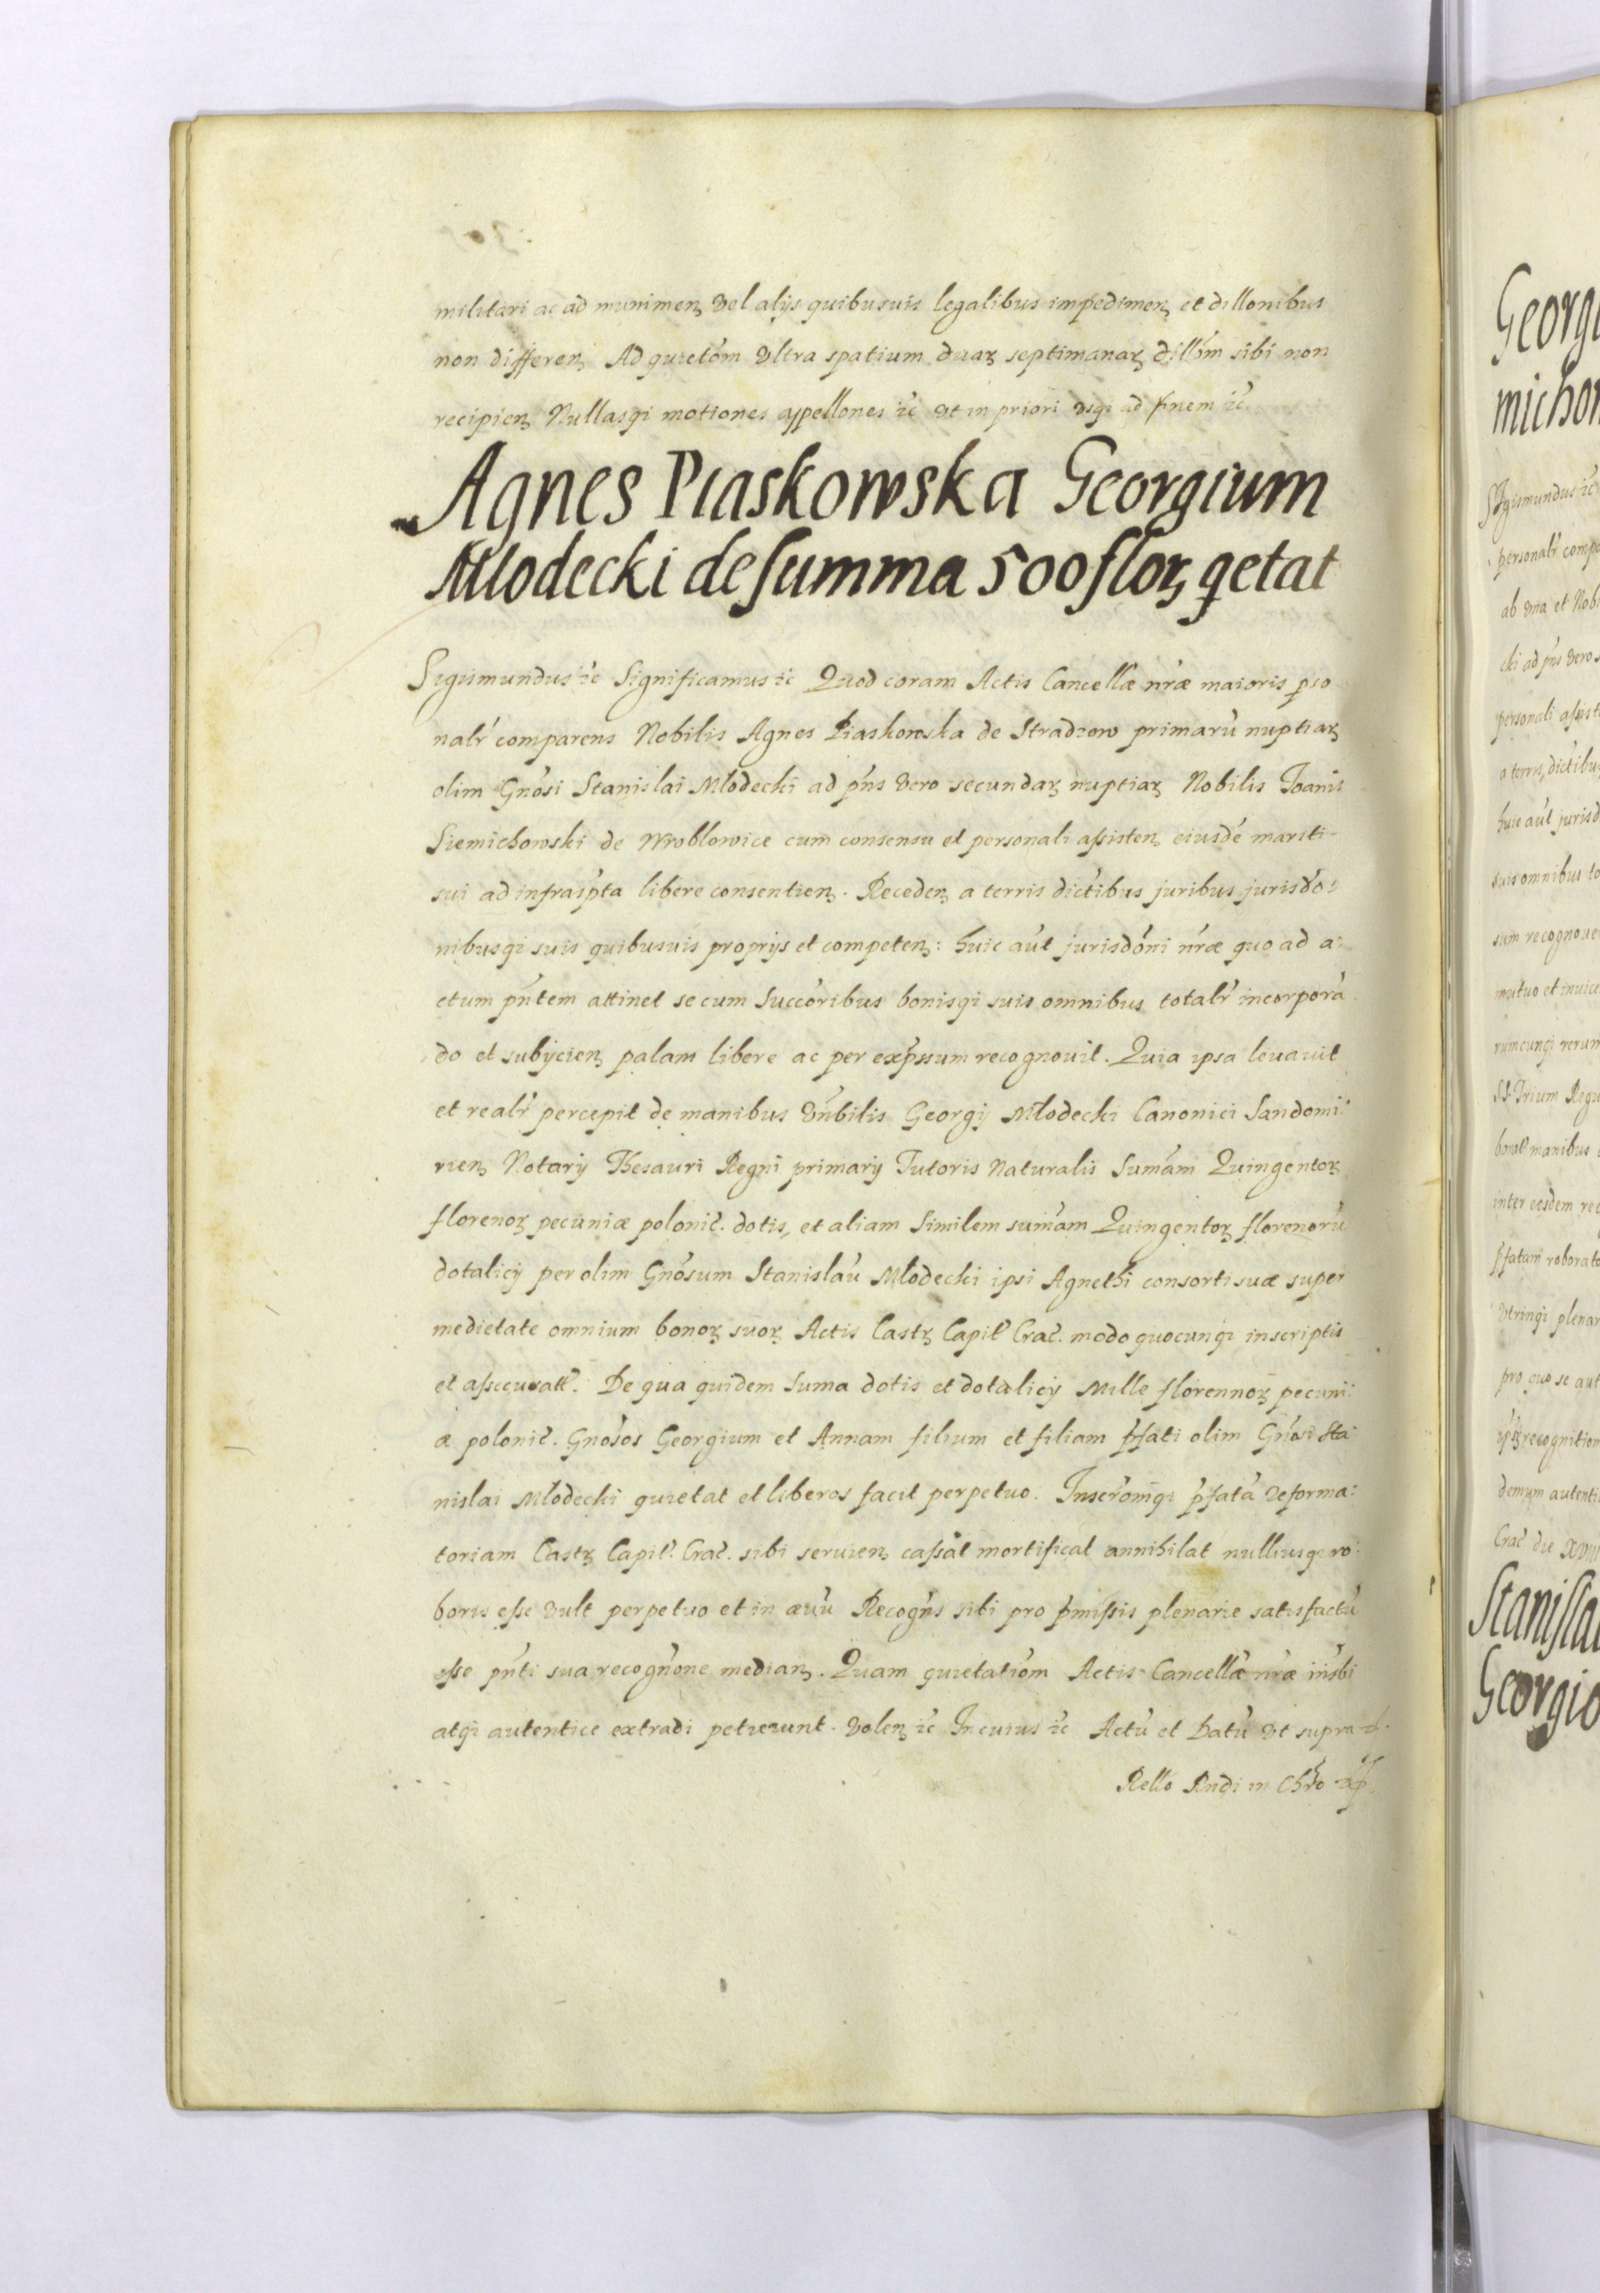 militari ac ad munimenꝫ vel alijs quibusuis legalibus impedimenꝫ et dillonibus
non differenꝫ Ad quietom̃ vltra spatium duaꝝ septimanaꝝ dillom̃ sibi non
recipienꝫ Nullasqꝫ motiones appellones ꝛc vt in priori vsqꝫ ad finem ꝛc
Agnes Piaskowska Georgium
Mlodecki de summa 500 floꝝ qetat
Sigismundus ꝛc Significamus ꝛc Quod coram Actis Cancellæ nr̃æ maioris ꝑso
nalr̃ comparens Nobilis Agnes Piaskowska de Stradzow primarũ nuptiaꝝ
olim Gnõsi Stanislai Młodecki ad pñs vero secundaꝝ nuptiaꝝ Nobilis Joanis
Siemichowski de Wroblowice cum consensu et personali assistenꝫ eiusdẽ mariti
sui ad infrasp̃ta libere consentienꝫ. Recedenꝫ a terris dictibus juribus jurisdo:
nibusqꝫ suis quibusuis proprijs et competenꝫ: huic aũt jurisdõni nr̃æ quo ad a:
ctum pñtem attinet se cum Succõribus bonisqꝫ suis omnibus totalr̃ incorporã
do et subijcienꝫ palam libere ac per exp̃ssum recognouit. Quia ipsa leuauit
et realr̃ percepit de manibus Vñbilis Georgij Młodecki Canonici Sandomi:
rienꝫ Notarij Thesauri Regni primarij Tutoris Naturalis Sum̃am Quingentoꝝ
florenoꝝ pecuniæ polonic̃. dotis, et aliam Similem sum̃am Quingentoꝝ florenorũ
dotalicij per olim Gnõsum Stanislaũ Młodecki ipsi Agnethi consorti suæ super
medietate omnium bonoꝝ suoꝝ Actis Castꝝ Capit̃ Crac̃. modo quocunqꝫ inscriptis
et assecuratt̃. De qua quidem Suma dotis et dotalicij Mille florennoꝝ pecuni:
æ polonic̃. Gnõsos Georgium et Annam filium et filiam p̃fati olim Gnõsi Sta
nislai Młodecki quietat et liberos facit perpetuo. Inscrõmqꝫ p̃fatã reforma:
toriam Castꝝ Capit̃. Crac̃. sibi seruienꝫ cassat mortificat annihilat nulliusqꝫ ro:
boris esse vult perpetuo et in æuũ Recogñs sibi pro p̃missis plenarie satisfactũ
esse pñti sua recogñone medianꝫ. Quam quietatiom̃ Actis Cancellæ nr̃æ iñsbi
atqꝫ autentice extradi petierunt. Volenꝫ ꝛc In cuius ꝛc Actũ et Datũ vt supra
Rello Rndi in Chr̃o
Georgi
michow
Sigismundus ꝛc
personalr̃ compa
ab vna et Nobi
cki ad pñs vero s
personali assiste
a terris, dictibus
huic aũt jurisd
suis omnibus to
sum recognoue
mutuo et inuice
rumcunqꝫ rerum
SS Trium Regu
bonat manibus
inter eosdem rec
p̃fatam roborata
vtrinqꝫ plenar
pro quo se aut
recognition
demum autenti
Crac̃ die XVIII
Stanislai
Georgio